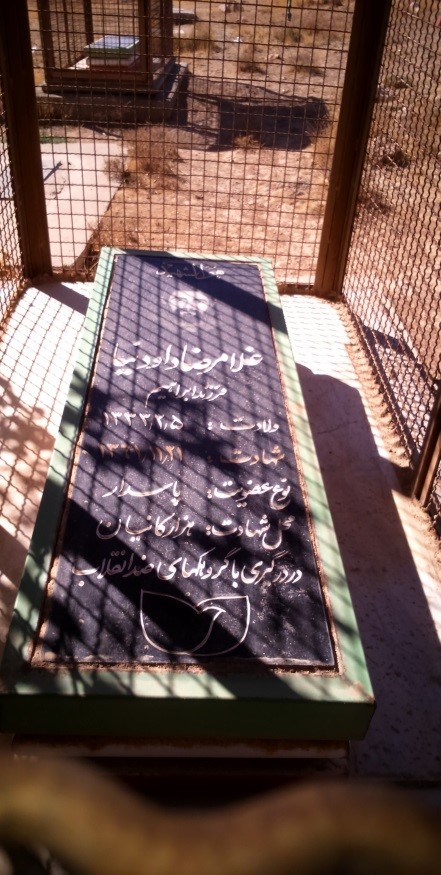 هوالشهید
غلامرضا داودنیا
فرزند ابراهیم
ولادت: ۱۳۳۳/۲/۵
شهادت:
نوع عضویت: پاسدار
محل شهادت: هزارکانیان
در درگیری با گروهکهای ضد انقلاب